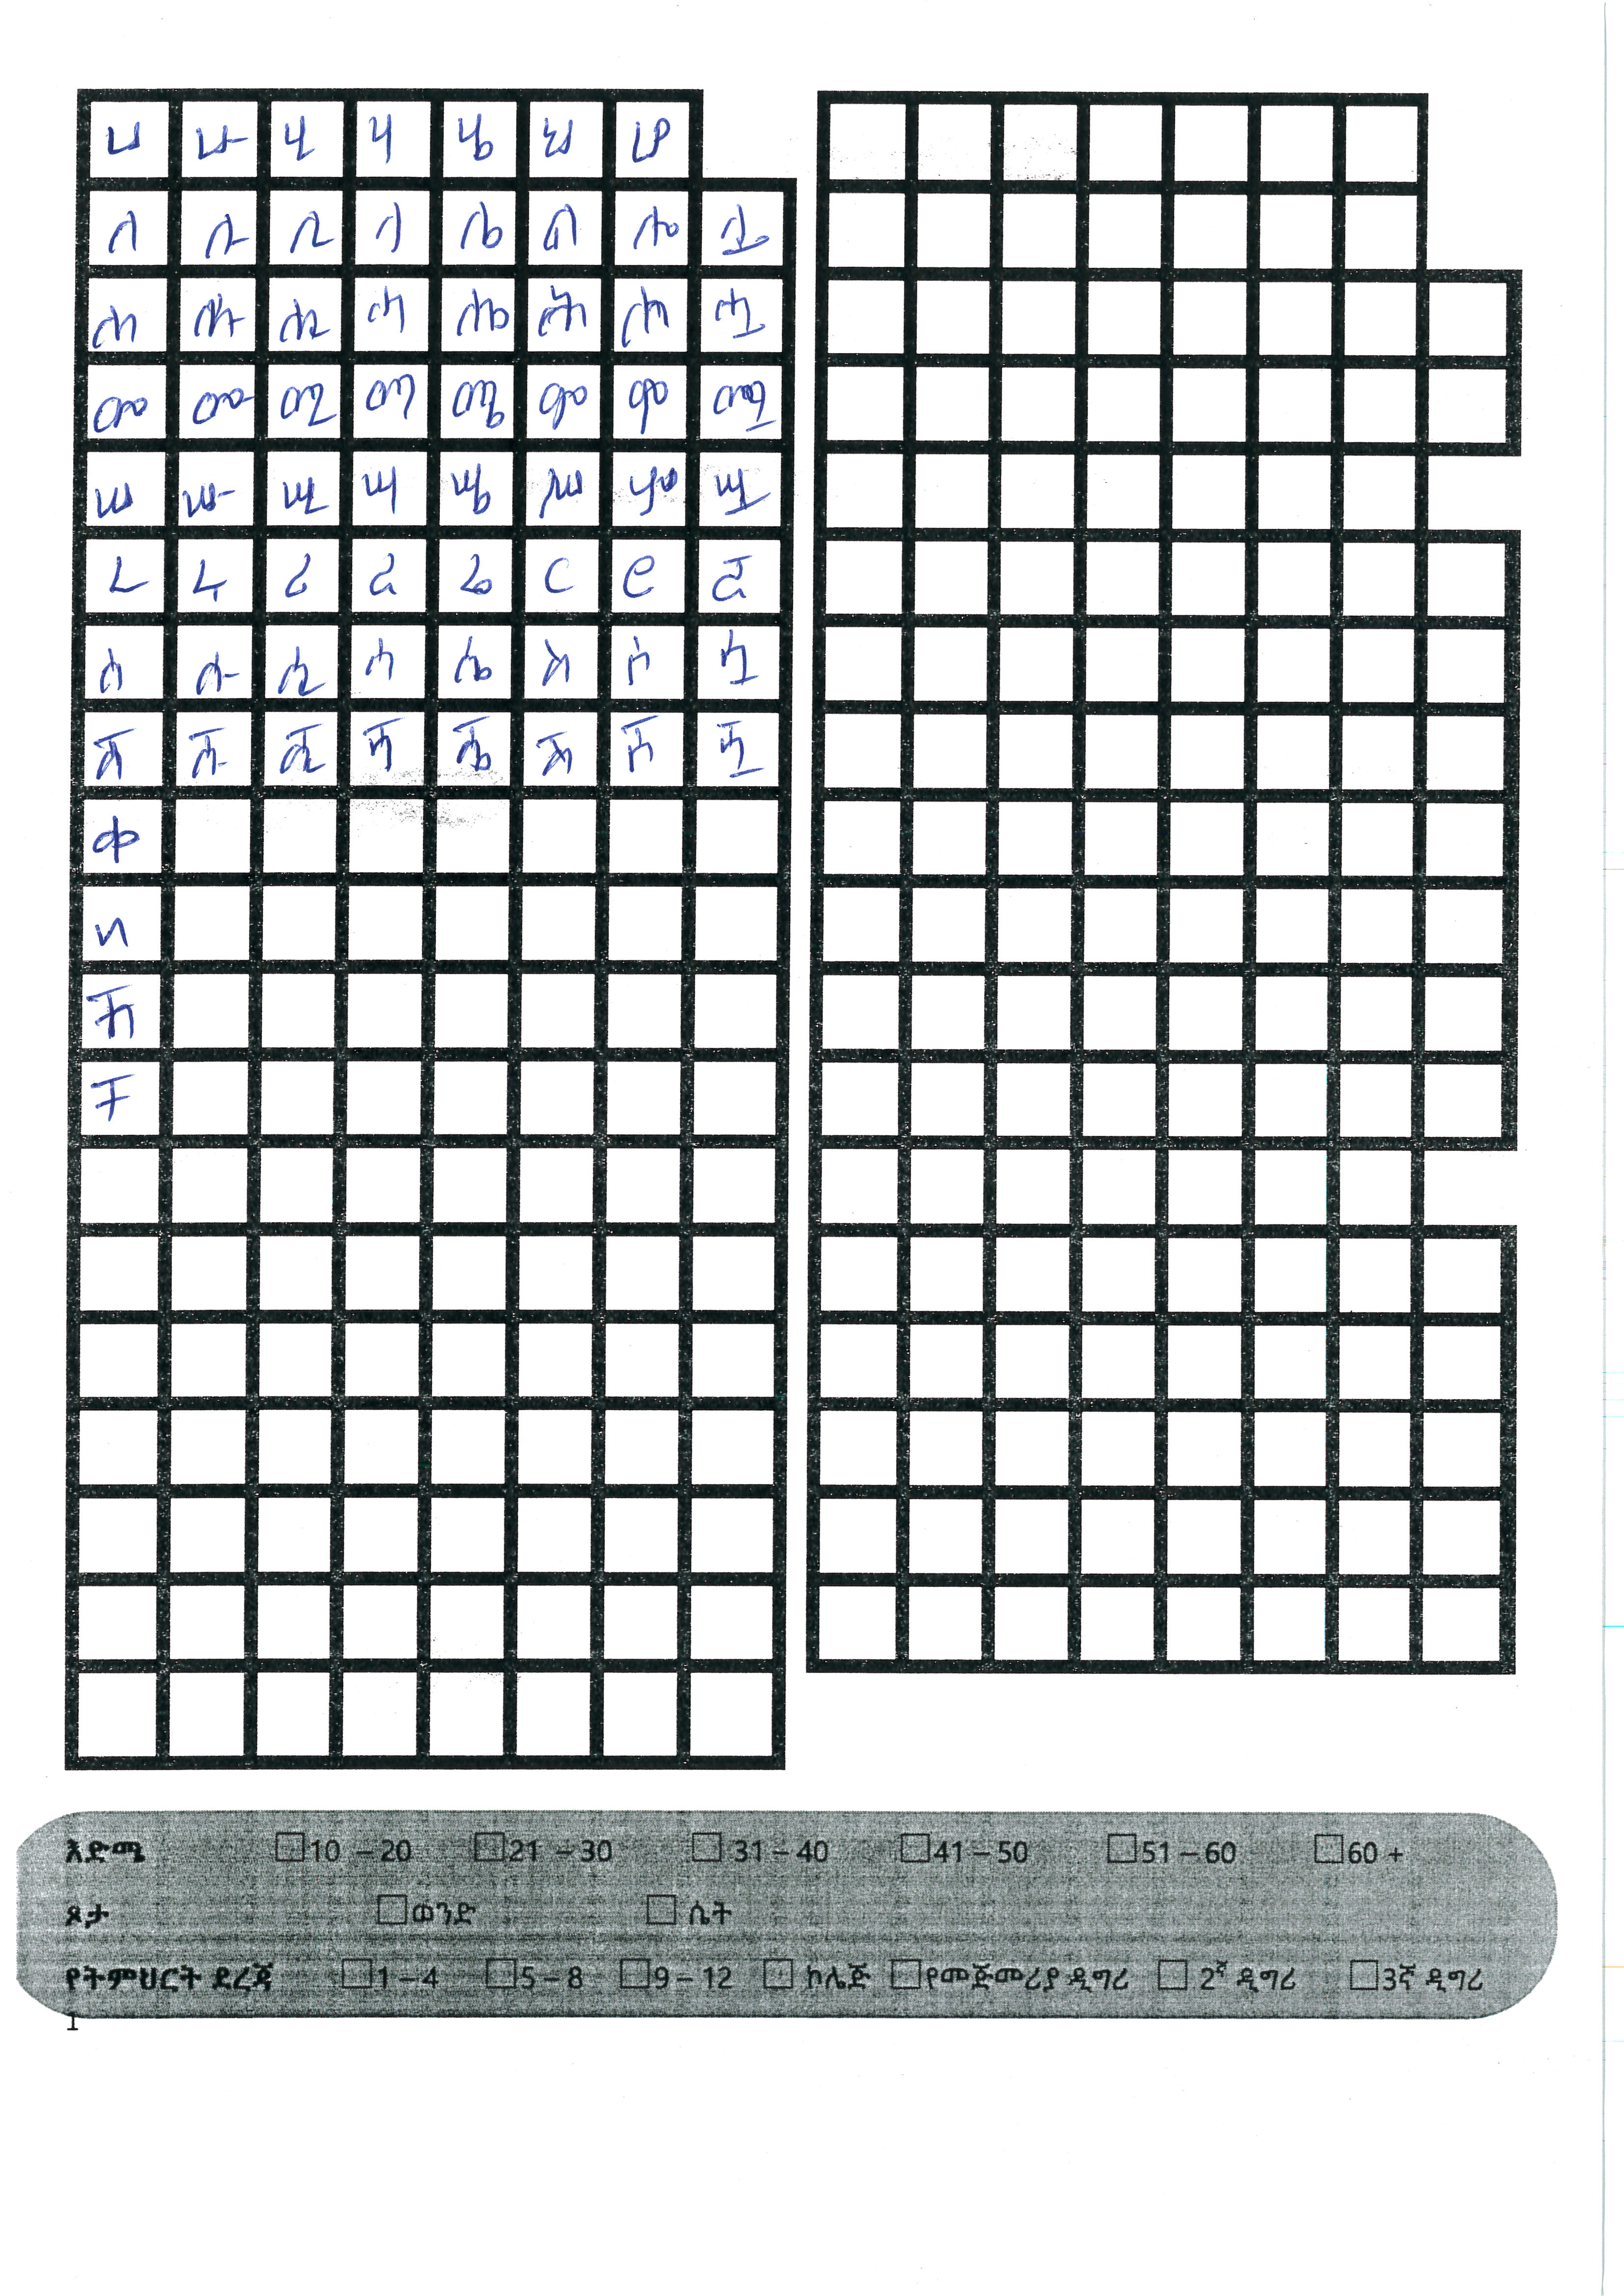 ሀ ሁ ሂ ሃ ሄ ህ ሆ
ለ ሉ ሊ ላ ሌ ል ሎ ሏ
ሐ ሑ ሒ ሓ ሔ ሕ ሖ ሗ
መ ሙ ሚ ማ ሜ ም ሞ ሟ
ሠ ሡ ሢ ሣ ሤ ሥ ሦ ሧ
ረ ሩ ሪ ራ ሬ ር ሮ ሯ
ሰ ሱ ሲ ሳ ሴ ስ ሶ ሷ
ሸ ሹ ሺ ሻ ሼ ሽ ሾ ሿ
ቀ
በ
ቸ
እድሜ 10 – 20 21 – 30 31 – 40 41 – 50 51 – 60 60 +
ጾታ ወንድ ሴት
የትምህርት ደረጃ 1 – 4 5 – 8 9 – 12 ኮሌጅ የመጅመሪያ ዲግሪ 2ኛ ዲግሪ 3ኛ ዲግሪ
1